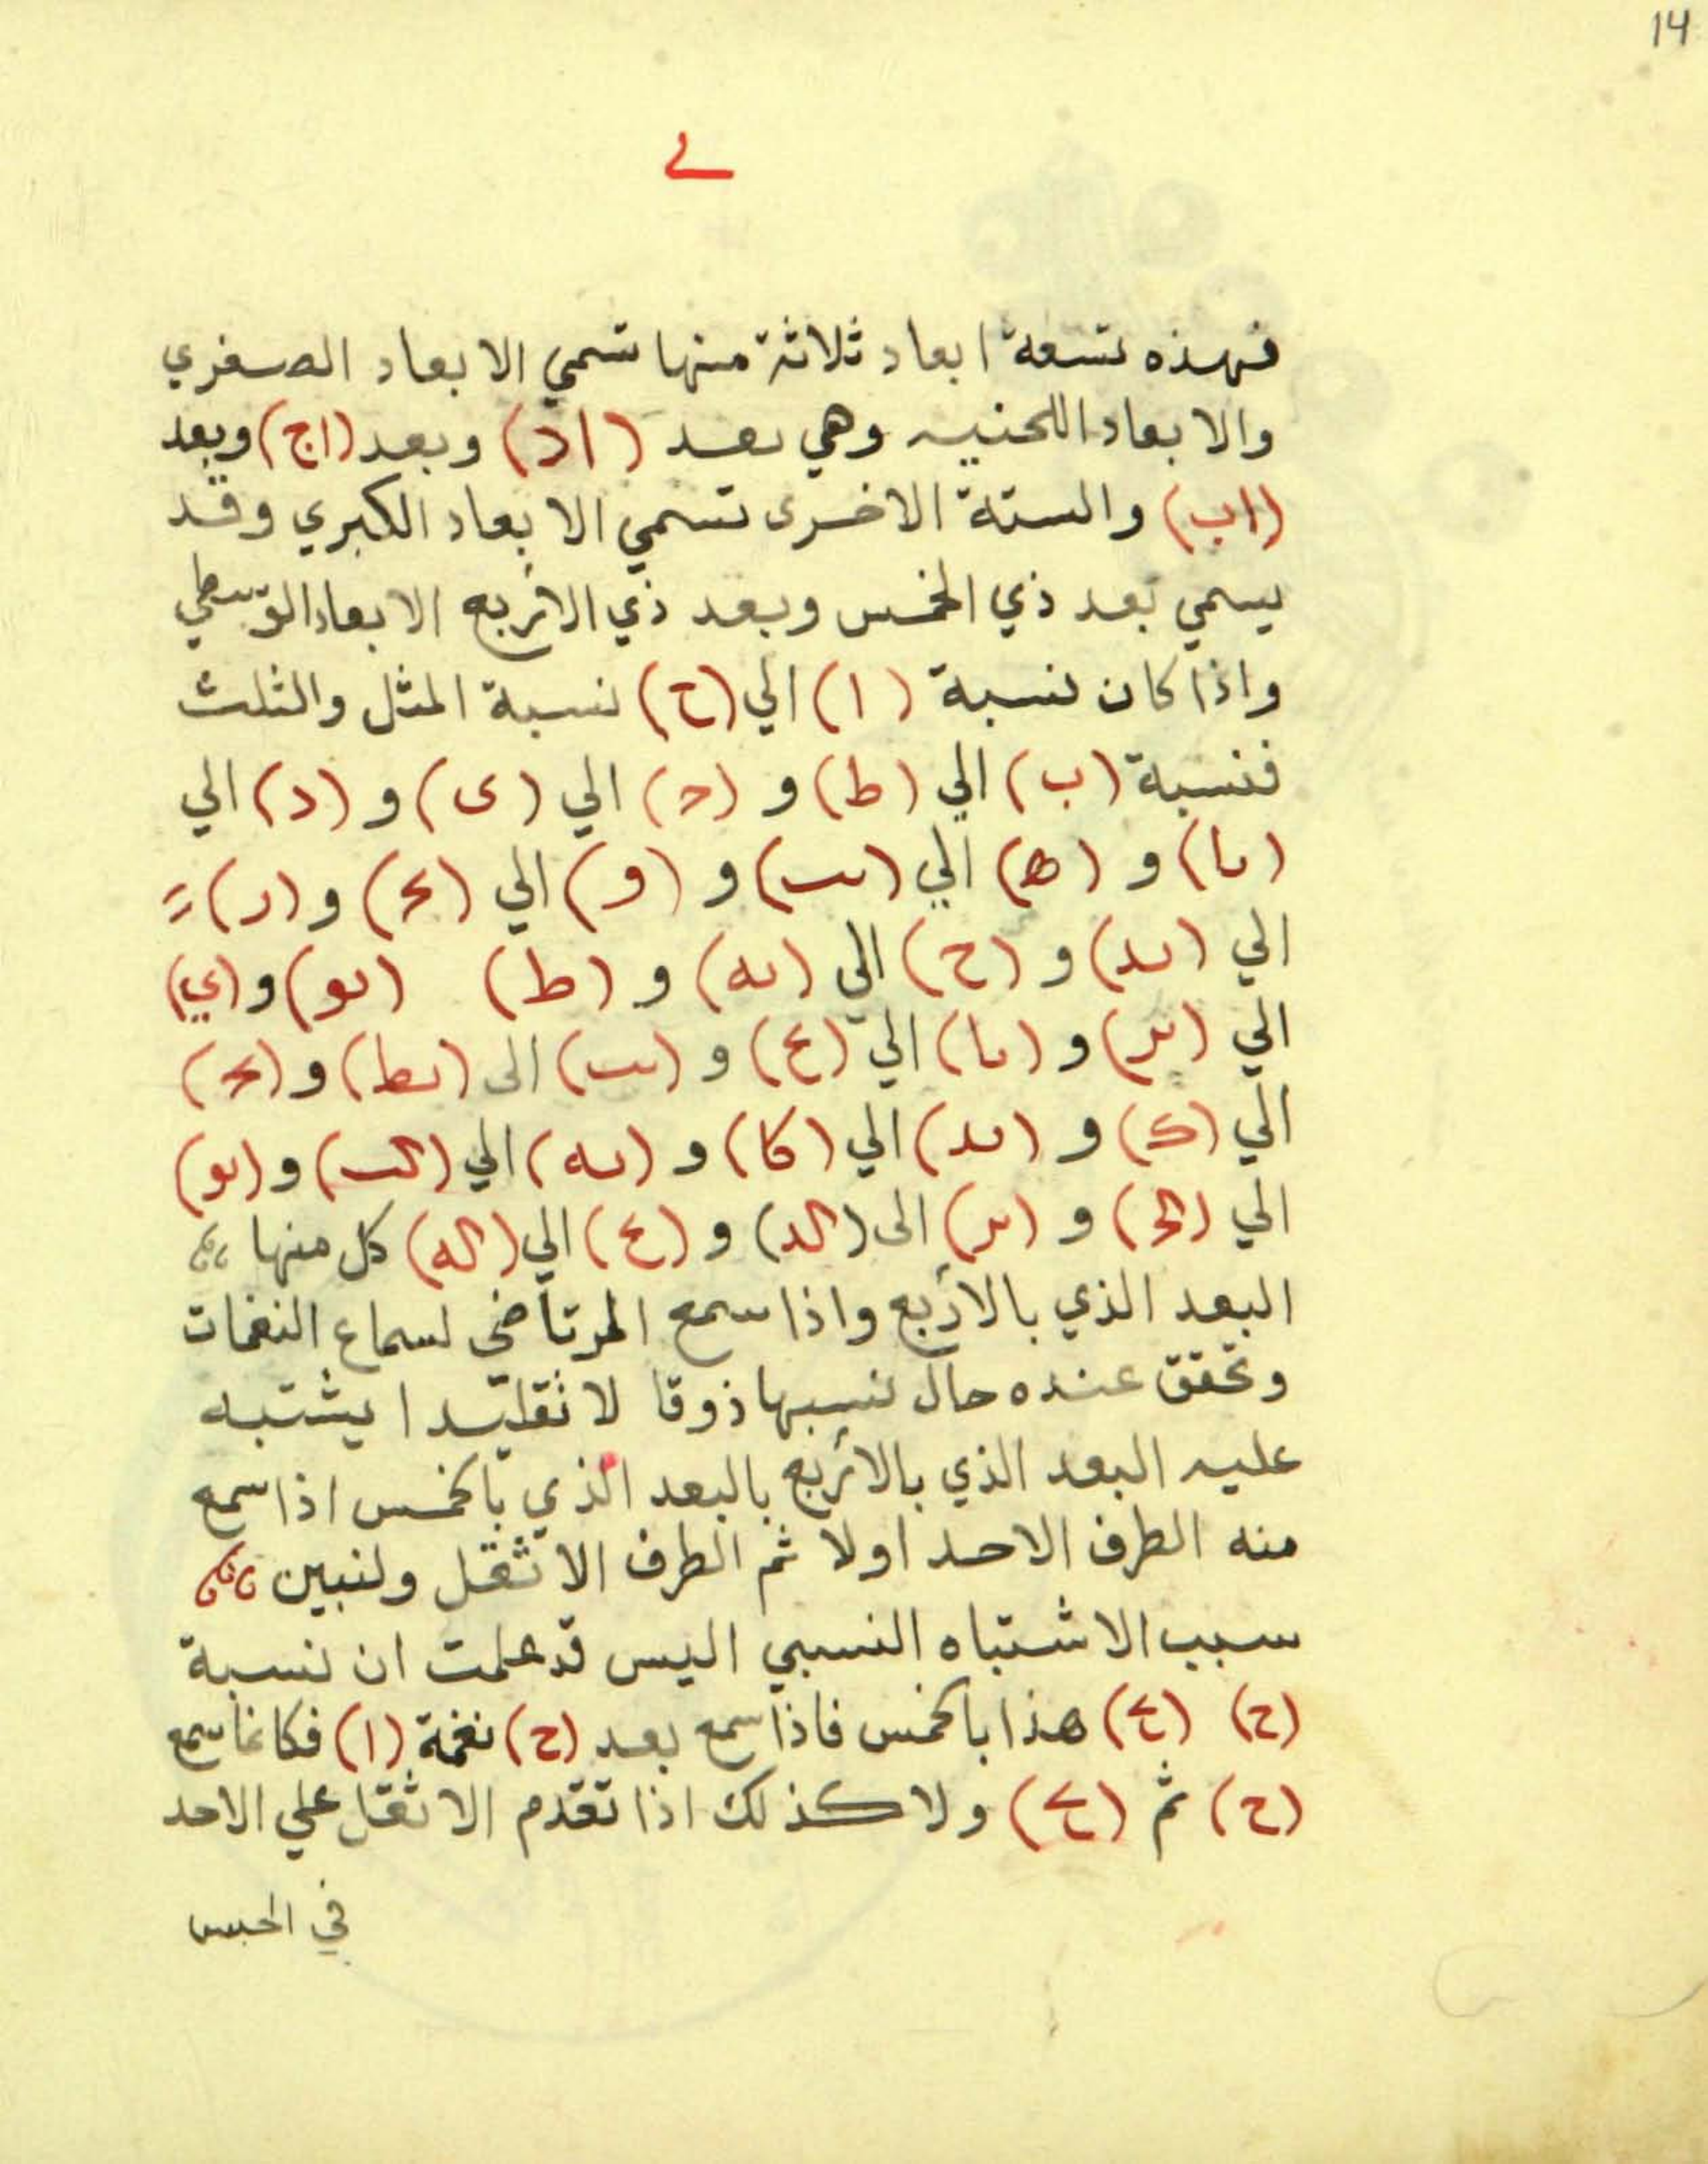 14
فهذه تسعة ابعاد ثلاثة منها تسمي الابعاد الصغري
والابعاد اللحنيه وهي بعد (اد) وبعد (اج) وبعد
(اب) والستة الاخرى تسمي الابعاد الكبري وقد
يسمي بعد ذي الخمس وبعد ذي الاربع الابعاد الوسطي
واذا كان نسبة (ا) الي (ح) نسبة المثل والثلث
فنسبة (ب) الي (ط) و (ح) الي (ى) و (د) الي
(ىا) و (ه) الي (ىب) و (و) الي (ىح) و (ر)
الي (ىد) و (ح) الي (ىه) و (ط) (ىو) و (ي)
الي (ىر) و (ىا) الي (ع) و (ىب) الى (ىط) و (ىح)
الي (ك) و (ىد) الي (كا) و (ىه) الي (كب) و (ىو)
الي (كح) و (ىر) الى (كد) و (ع) الي (كه) كل منها
البعد الذي بالأربع واذا سمع المرتاض لسماع النغمات
وتحقق عنده حال نسبها ذوقا لا تقليدا يشتبه
عليه البعد الذي بالأربع بالبعد الذي بالخمس اذا سمع
منه الطرف الاحد اولا ثم الطرف الاثقل ولنبين
سبب الاشتباه النسبي اليس قد علمت ان نسبة
(ح) (ع) هذا بالخمس فاذا سمع بعد (ح) نغمة (ا) فكانما سمع
(ح) ثم (ع) ولا كذلك اذا تقدم الاثقل علي الاحد
في الحبس